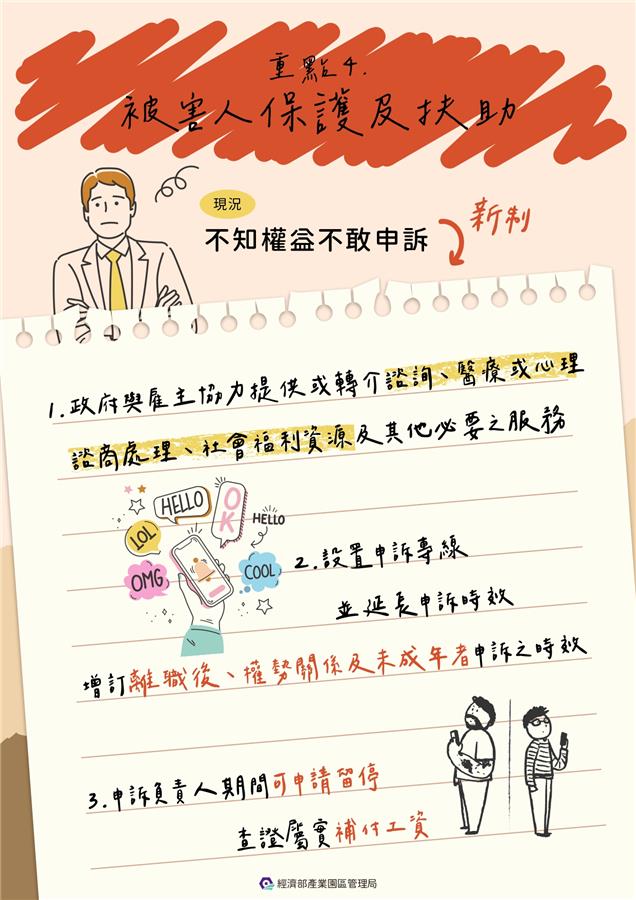 重點4.
被害人保護及扶助
現況
不知權益不敢申訴
新制
1.政府與雇主協力提供或轉介諮詢、醫療或心理
諮商處理、社會福利資源及其他必要之服務
HELLO
OK
HELLO
LOL
OMG
COOL
2.設置申訴專線
並延長申訴時效
增訂離職後、權勢關係及未成年者申訴之時效
3.申訴負責人期間可申請留停
查證屬實補付工資
經濟部產業園區管理局